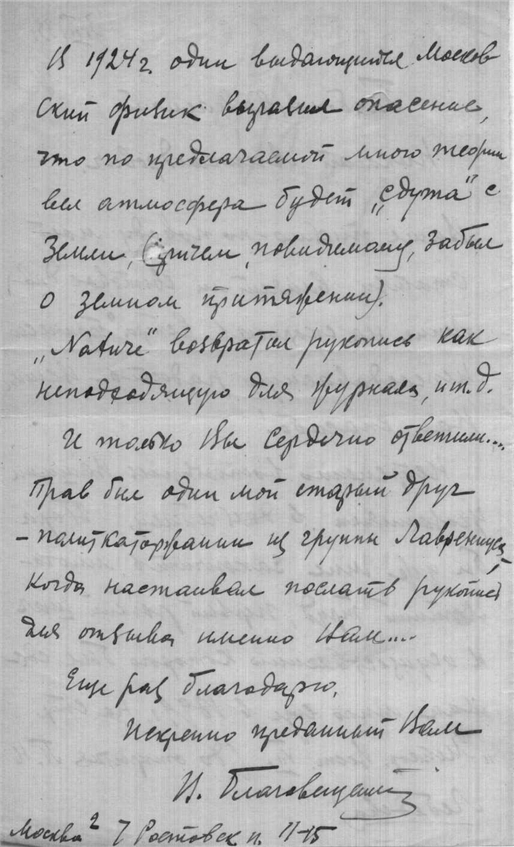 В 1924 г. один выдающийся Москов
ский физик выразил опасение,
что по предлагаемой мною теории
вся атмосфера будет „сдута“ с
Земли, (причем, повидимому, забыл
о земном притяжении).
„Nature“ возвратил рукопись как
неподходящую для журнала, и т. д.
И только Вы сердечно ответили....
Прав был один мой старый друг
– политкаторжанин из группы
когда настаивал послать рукопись
для отзыва именно Вам....
Еще раз благодарю.
Искренно преданный Вам
Н. Благовещенский
Москва 2 7 Ростовск п. 11-15